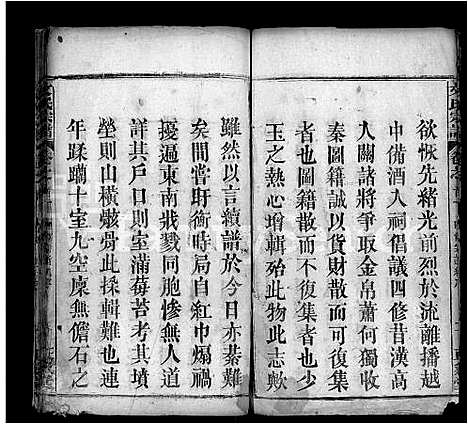 欲恢先緒光前烈於流離播越
中備酒入祠倡議四修昔漢高
人關諸將爭取金帛蕭何獨收
秦圖籍誠以貨財散而可復集
圖籍散而不復集者也少
玉之熱心增輯殆物此志歟
雖然以言續譜於今日亦綦難
矣間嘗盱衡時局自紅巾煽禍
擾遍東南戕戮同胞慘無人道
詳其戶口則室滿莓苔考其墳
塋則山橫骸骨此採輯難也連
年蹂躪十室九空廩無儋石之
氏宗譜